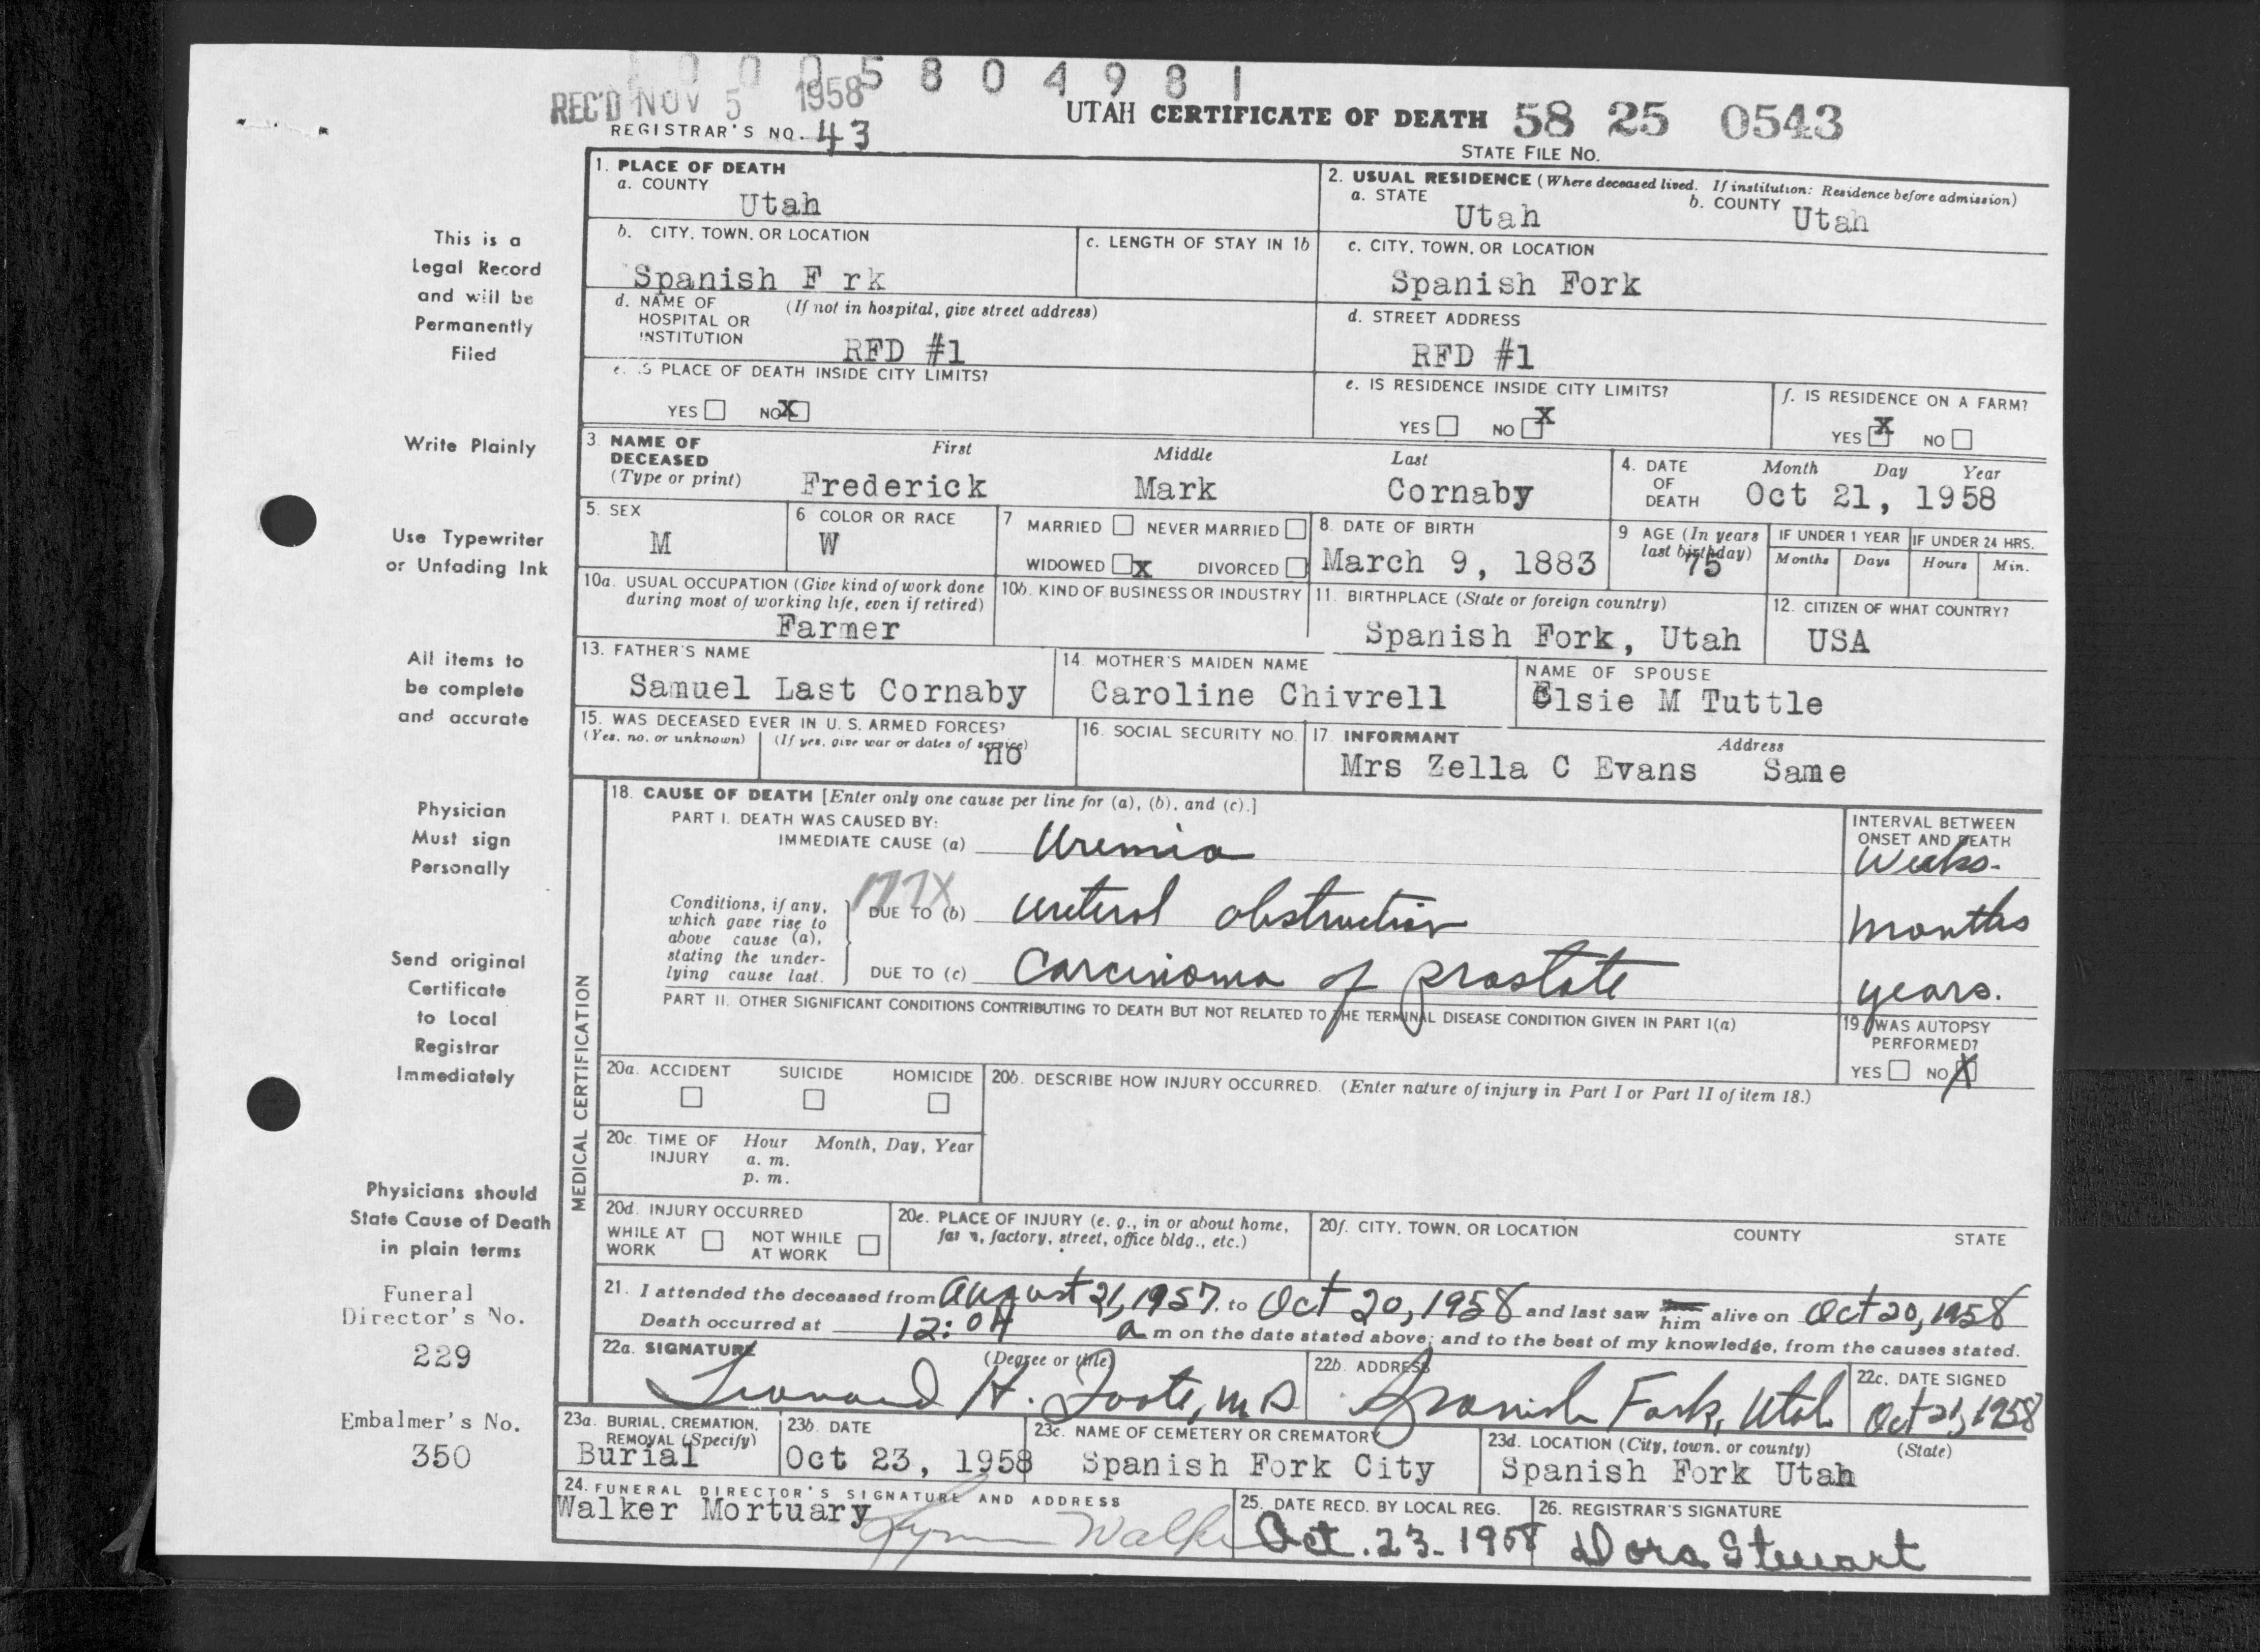 1 0 0 0 5 8 0 4 9 8 1
REC'D NOV 5 1958
UTAH CERTIFICATE OF DEATH 58 25 0543
REGISTRAR'S NO. 43
STATE FILE NO.
1. PLACE OF DEATH
a. COUNTY
Utah
2. USUAL RESIDENCE (Where deceased lived. If institution: Residence before admission)
a. STATE
Utah
b. COUNTY Utah
b. CITY, TOWN, OR LOCATION
Spanish F rk
c. LENGTH OF STAY IN 1b
c. CITY, TOWN, OR LOCATION
Spanish Fork
d. NAME OF HOSPITAL OR INSTITUTION (If not in hospital, give street address)
RFD #1
d. STREET ADDRESS
RFD #1
e. IS PLACE OF DEATH INSIDE CITY LIMITS?
YES NO X
e. IS RESIDENCE INSIDE CITY LIMITS?
YES NO X
f. IS RESIDENCE ON A FARM?
YES X NO
3. NAME OF DECEASED (Type or print)
First Middle Last
Frederick Mark Cornaby
4. DATE OF DEATH
Month Day Year
Oct 21, 1958
5. SEX
M
6 COLOR OR RACE
W
7 MARRIED NEVER MARRIED
WIDOWED X DIVORCED
8. DATE OF BIRTH
March 9, 1883
9 AGE (In years last birthday)
75
IF UNDER 1 YEAR
Months Days
IF UNDER 24 HRS.
Hours Min.
10a. USUAL OCCUPATION (Give kind of work done during most of working life, even if retired)
Farmer
10b. KIND OF BUSINESS OR INDUSTRY
11. BIRTHPLACE (State or foreign country)
Spanish Fork, Utah
12. CITIZEN OF WHAT COUNTRY?
USA
13. FATHER'S NAME
Samuel Last Cornaby
14. MOTHER'S MAIDEN NAME
Caroline Chivrell
NAME OF SPOUSE
Elsie M Tuttle
15. WAS DECEASED EVER IN U. S. ARMED FORCES?
(Yes, no, or unknown) (If yes, give war or dates of service)
no
16. SOCIAL SECURITY NO.
17. INFORMANT Address
Mrs Zella C Evans Same
MEDICAL CERTIFICATION
18. CAUSE OF DEATH [Enter only one cause per line for (a), (b), and (c).]
PART I. DEATH WAS CAUSED BY:
IMMEDIATE CAUSE (a) Uremia
INTERVAL BETWEEN ONSET AND DEATH
Weeks-
Conditions, if any, which gave rise to above cause (a), stating the underlying cause last.
177X
DUE TO (b) ureteral obstruction
months
DUE TO (c) Carcinoma of prostate
years.
PART II. OTHER SIGNIFICANT CONDITIONS CONTRIBUTING TO DEATH BUT NOT RELATED TO THE TERMINAL DISEASE CONDITION GIVEN IN PART I(a)
19. WAS AUTOPSY PERFORMED?
YES NO X
20a. ACCIDENT SUICIDE HOMICIDE
20b. DESCRIBE HOW INJURY OCCURRED. (Enter nature of injury in Part I or Part II of item 18.)
20c. TIME OF INJURY
Hour Month, Day, Year
a. m.
p. m.
20d. INJURY OCCURRED
WHILE AT WORK NOT WHILE AT WORK
20e. PLACE OF INJURY (e. g., in or about home, farm, factory, street, office bldg., etc.)
20f. CITY, TOWN, OR LOCATION COUNTY STATE
21. I attended the deceased from August 21, 1957, to Oct 20, 1958 and last saw him alive on Oct 20, 1958
Death occurred at 12:04 a m on the date stated above; and to the best of my knowledge, from the causes stated.
22a. SIGNATURE (Degree or title)
Leonard H. Foote, M D
22b. ADDRESS
Spanish Fork, Utah
22c. DATE SIGNED
Oct 21, 1958
23a. BURIAL, CREMATION, REMOVAL (Specify)
Burial
23b. DATE
Oct 23, 1958
23c. NAME OF CEMETERY OR CREMATORY
Spanish Fork City
23d. LOCATION (City, town, or county) (State)
Spanish Fork Utah
24. FUNERAL DIRECTOR'S SIGNATURE AND ADDRESS
Walker Mortuary Lynn Walker
25. DATE RECD. BY LOCAL REG.
Oct. 23- 1958
26. REGISTRAR'S SIGNATURE
Dora Stewart
This is a
Legal Record
and will be
Permanently
Filed
Write Plainly
Use Typewriter
or Unfading Ink
All items to
be complete
and accurate
Physician
Must sign
Personally
Send original
Certificate
to Local
Registrar
Immediately
Physicians should
State Cause of Death
in plain terms
Funeral
Director's No.
229
Embalmer's No.
350